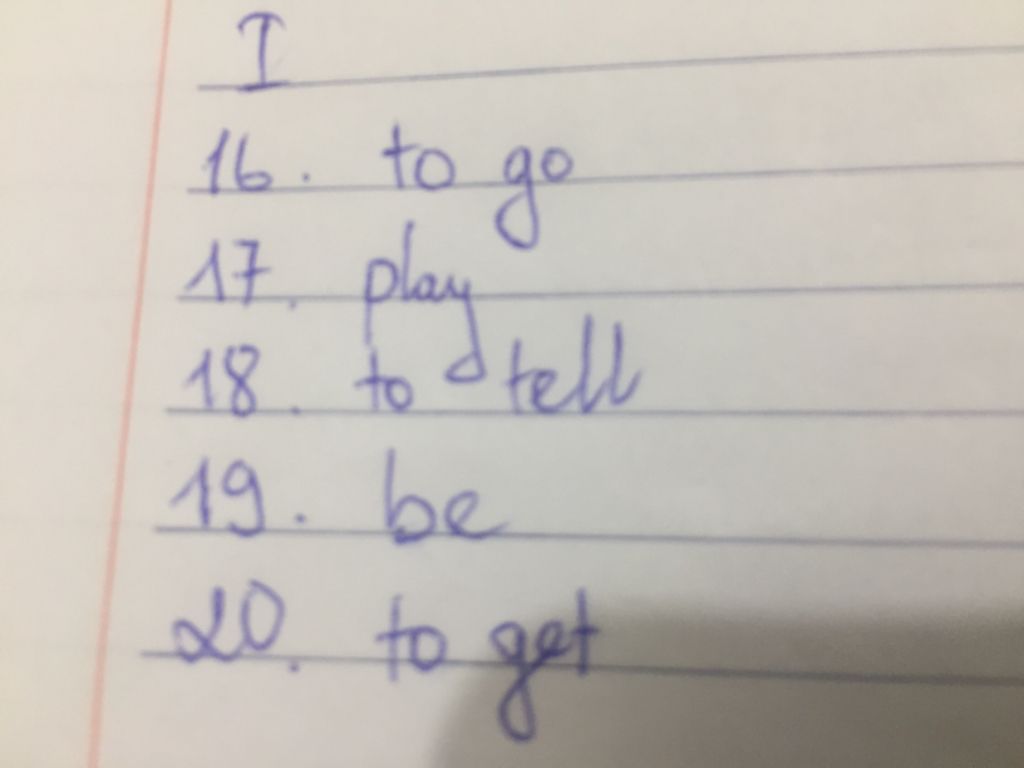 I
16. to go
17. play
18. to tell
19. be
20. to get